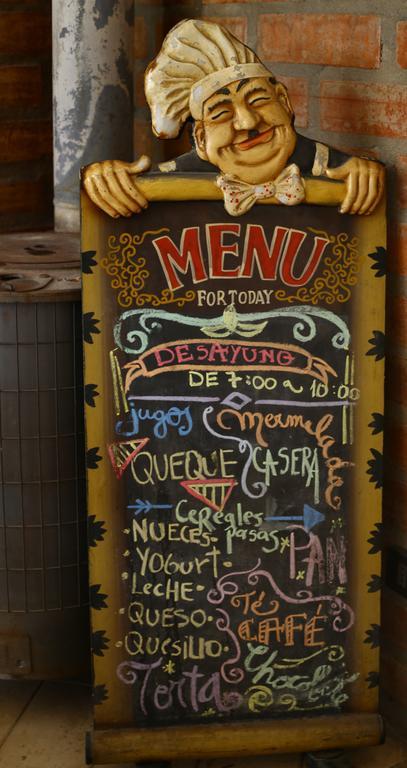 MENU
FOR TODAY
DESAYUNO
DE 7:00 a 10:00
jugos
Mermeladas
QUEQUE
CASERA
Cereales
NUECES - pasas
PAN
YOGURT -
LECHE -
QUESO -
QUESILLO -
Té
CAFÉ
Torta